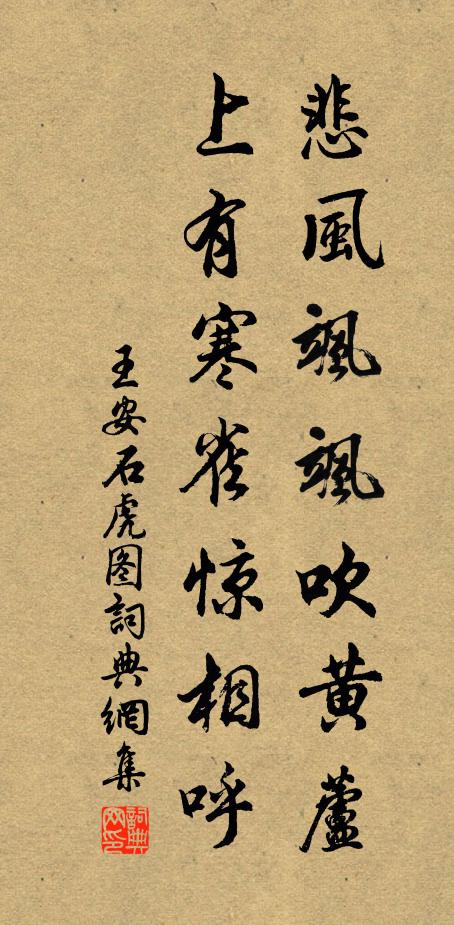 悲風颯颯吹黄蘆
上有寒雀惊相呼
王安石虎图詞典網集
詞典网印